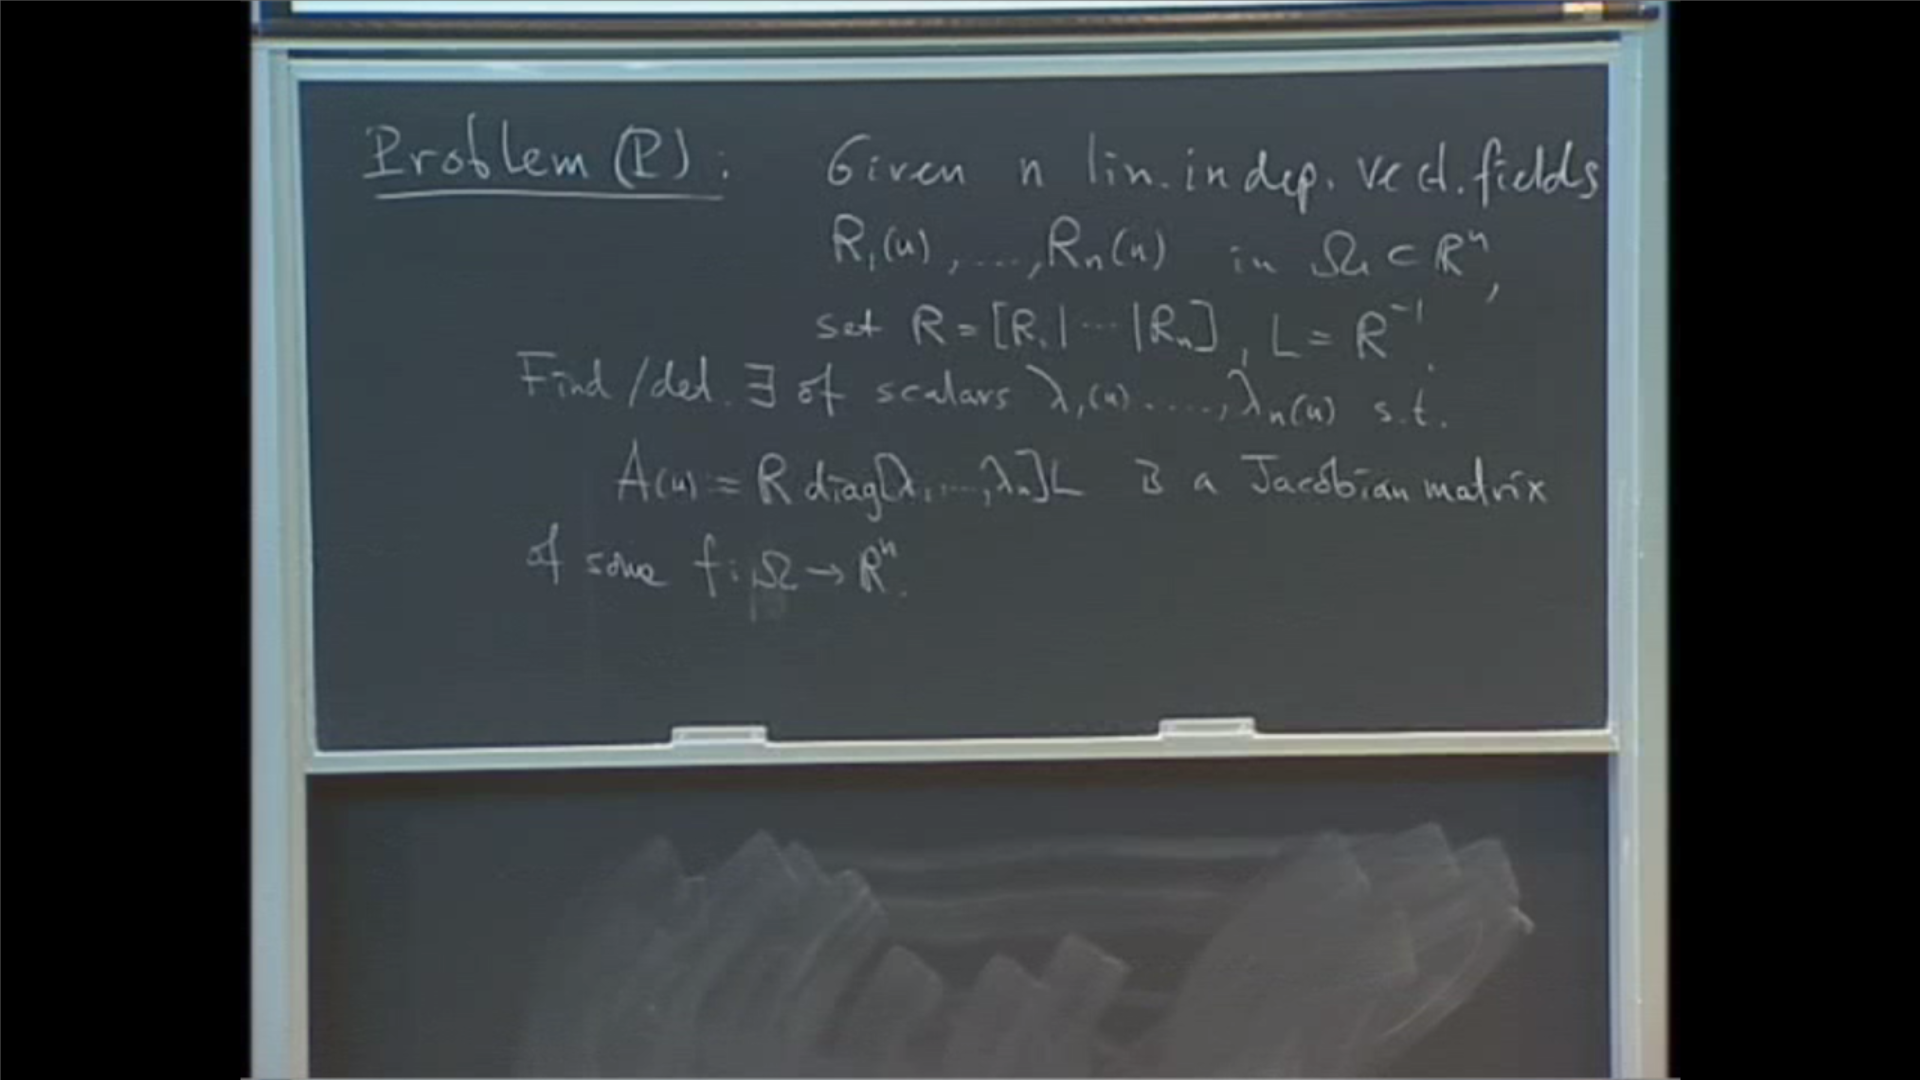 Problem (P): Given n lin. indep. vect. fields
R₁(u), ..., Rₙ(u) in Ω ⊂ ℝⁿ,
set R = [R₁|⋯|Rₙ], L = R⁻¹.
Find/det. ∃ of scalars λ₁(u), ..., λₙ(u) s.t.
A(u) = R diag[λ₁, ..., λₙ]L is a Jacobian matrix
of some f: Ω → ℝⁿ.